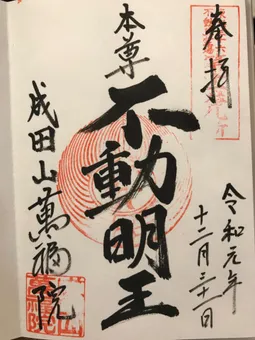 奉拝
本尊
不動明王
成田山萬福院
令和元年
十二月三十一日